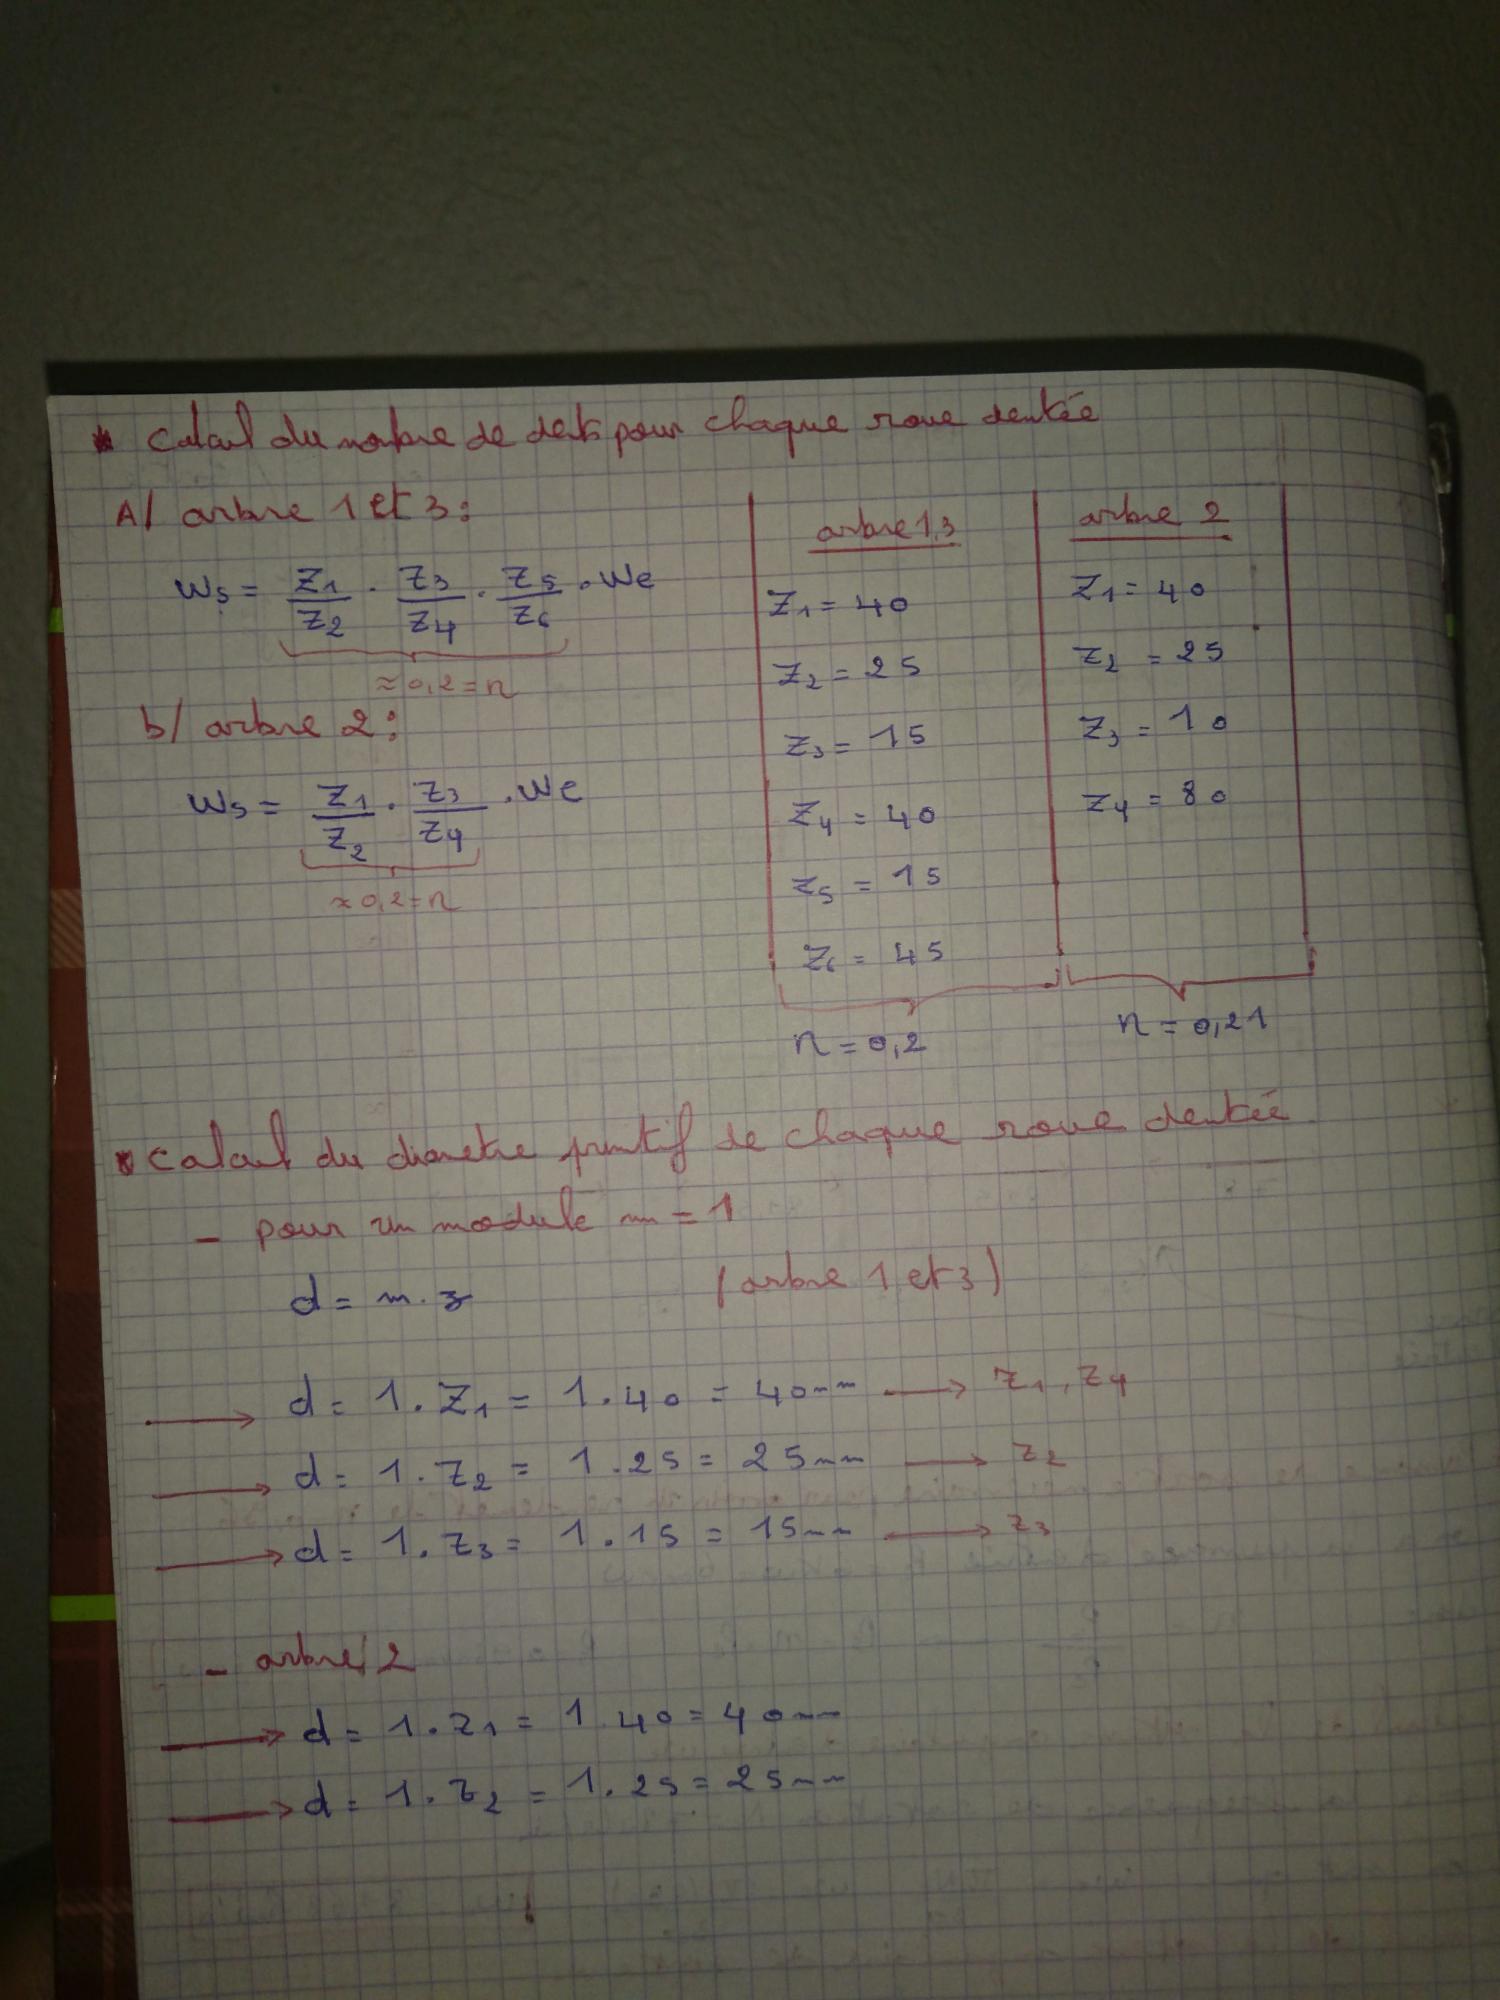 * Calcul du nombre de dents pour chaque roue dentée
A/ arbre 1 et 3 :
Ws = Z1/Z2 . Z3/Z4 . Z5/Z6 . We
≈ 0,2 = n
b/ arbre 2 :
Ws = Z1/Z2 . Z3/Z4 . We
≈ 0,2 = n
arbre 1,3
Z1 = 40
Z2 = 25
Z3 = 15
Z4 = 40
Z5 = 15
Z6 = 45
n = 0,2
arbre 2
Z1 = 40
Z2 = 25
Z3 = 10
Z4 = 80
n = 0,21
* Calcul du diametre primitif de chaque roue dentée
- pour un module m = 1
d = m . z (arbre 1 et 3)
→ d = 1 . Z1 = 1 . 40 = 40mm → Z1, Z4
→ d = 1 . Z2 = 1 . 25 = 25mm → Z2
→ d = 1 . Z3 = 1 . 15 = 15mm → Z3
- arbre 2
→ d = 1 . Z1 = 1 . 40 = 40mm
→ d = 1 . Z2 = 1 . 25 = 25mm